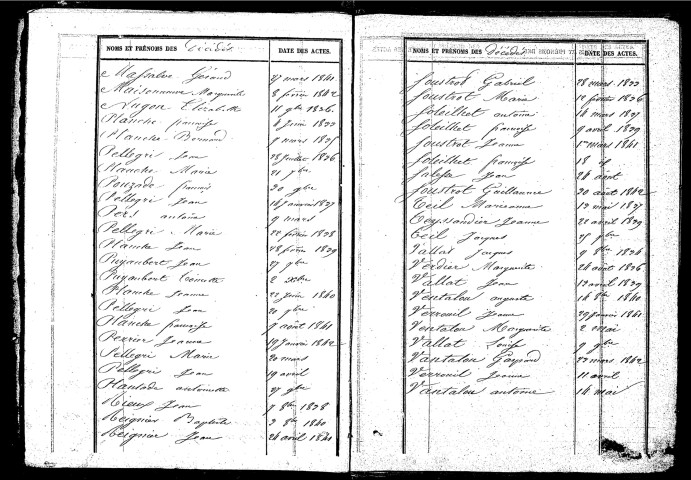 NOMS ET PRÉNOMS DES Décédés DATE DES ACTES.
Massabre Géraud 27 mars 1841
Maisonneuve Marguerite 8 février 1842
Nugon Elisabeth 11 9bre 1826
Planche françoise 4 février 1833
Planche Bernard 7 mars 1835
Pellegri Jean 28 Juillet 1836
Planche Marie 21 9bre
Pouzade françois 20 9bre
Pellegri Jean 16 Janvier 1837
Pers antoine 9 mars
Pellegri Marie 12 février 1838
Planche Jean 28 février 1839
Puyaubert Jean 27 9bre
Puyaubert 2 xbre
Planche Jeanne 22 Juin 1840
Pellegri Jean 20 9bre
Planche françoise 9 août 1841
Perrier Jeanne 19 Janvier 1842
Pellegri Marie 20 mars
Pellegri Jean 19 avril
Plantade antoinette 27 9bre
Rieux Jean 7 8bre 1838
Reignier Baptiste 2 8bre 1840
Reignier Jean 26 avril 1841
NOMS ET PRÉNOMS DES Décédés DATE DES ACTES.
Soustrot Gabriel 28 mars 1833
Soustrot Marie 12 février 1836
Soleilhet antoine 16 mars 1837
Soleilhet françoise 9 avril 1839
Soustrot Jeanne 17 mars 1841
Soleilhet françoise 18 id
Jean 26 août
Soustrot Guillaume 20 août 1842
Teil Marianne 13 mai 1837
Teyssandier Jeanne 22 avril 1839
Teil Jacques 25 9bre
Vallat Jacques 9 8bre 1834
Verdier Marguerite 26 août 1836
Vallat Jean 12 avril 1839
Vantalon auguste 16 8bre 1840
Verreuil Jeanne 29 Janvier 1841
Ventalon Marguerite 2 mai
Vallat Louise 9 9bre
Vantalon Géraud 22 mars 1842
Verreuil Jeanne 11 avril
Vantalon antoine 14 mai